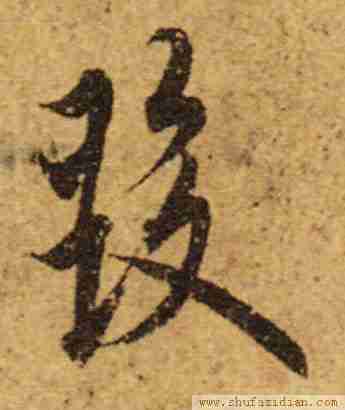 段
www.shufazidian.com